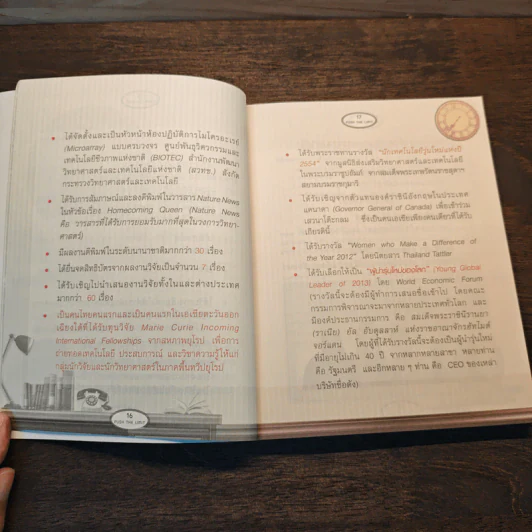 • ได้จัดตั้งและเป็นหัวหน้าห้องปฏิบัติการไมโครอะเรย์
(Microarray) แบบครบวงจร ศูนย์พันธุวิศวกรรมและ
เทคโนโลยีชีวภาพแห่งชาติ (BIOTEC) สำนักงานพัฒนา
วิทยาศาสตร์และเทคโนโลยีแห่งชาติ (สวทช.) สังกัด
กระทรวงวิทยาศาสตร์และเทคโนโลยี
• ได้รับการสัมภาษณ์และลงตีพิมพ์ในวารสาร Nature News
ในหัวข้อเรื่อง Homecoming Queen (Nature News
คือ วารสารที่ได้รับการยอมรับมากที่สุดในวงการวิทยา
ศาสตร์)
• มีผลงานตีพิมพ์ในระดับนานาชาติมากกว่า 30 เรื่อง
• ได้ยื่นจดสิทธิบัตรจากผลงานวิจัยเป็นจำนวน 7 เรื่อง
• ได้รับเชิญไปนำเสนองานวิจัยทั้งในและต่างประเทศ
มากกว่า 60 เรื่อง
• เป็นคนไทยคนแรกและเป็นคนแรกในเอเชียตะวันออก
เฉียงใต้ที่ได้รับทุนวิจัย Marie Curie Incoming
International Fellowships จากสหภาพยุโรป เพื่อการ
ถ่ายทอดเทคโนโลยี ประสบการณ์ และวิชาความรู้ให้แก่
กลุ่มนักวิจัยและนักวิทยาศาสตร์ในภาคพื้นทวีปยุโรป
16
PUSH THE LIMIT
17
PUSH THE LIMIT
• ได้รับพระราชทานรางวัล "นักเทคโนโลยีรุ่นใหม่แห่งปี
2554" จากมูลนิธิส่งเสริมวิทยาศาสตร์และเทคโนโลยี
ในพระบรมราชูปถัมภ์ จากสมเด็จพระเทพรัตนราชสุดาฯ
สยามบรมราชกุมารี
• ได้รับเชิญจากตัวแทนองค์ราชินีอังกฤษในประเทศ
แคนาดา (Governor General of Canada) เพื่อเข้าร่วม
เสวนาโต๊ะกลม ซึ่งเป็นคนเอเชียเพียงคนเดียวที่ได้รับ
เกียรตินี้
• ได้รับรางวัล "Women who Make a Difference of
the Year 2012" โดยนิตยสาร Thailand Tattler
• ได้รับเลือกให้เป็น "ผู้นำรุ่นใหม่ของโลก" (Young Global
Leader of 2013) โดย World Economic Forum
(รางวัลนี้จะต้องมีผู้ทำการเสนอชื่อเข้าไป โดยคณะ
กรรมการพิจารณาจะมาจากหลายประเทศทั่วโลก และ
มีองค์ประธานกรรมการ คือ สมเด็จพระราชินีรานยา
(ราเนีย) อัล อับดุลลาห์ แห่งราชอาณาจักรฮัชไมต์
จอร์แดน โดยผู้ที่ได้รับรางวัลนี้จะต้องเป็นผู้นำรุ่นใหม่
ที่มีอายุไม่เกิน 40 ปี จากหลากหลายสาขา หลายท่าน
คือ รัฐมนตรี และอีกหลาย ๆ ท่าน คือ CEO ของเหล่า
บริษัทชื่อดัง)